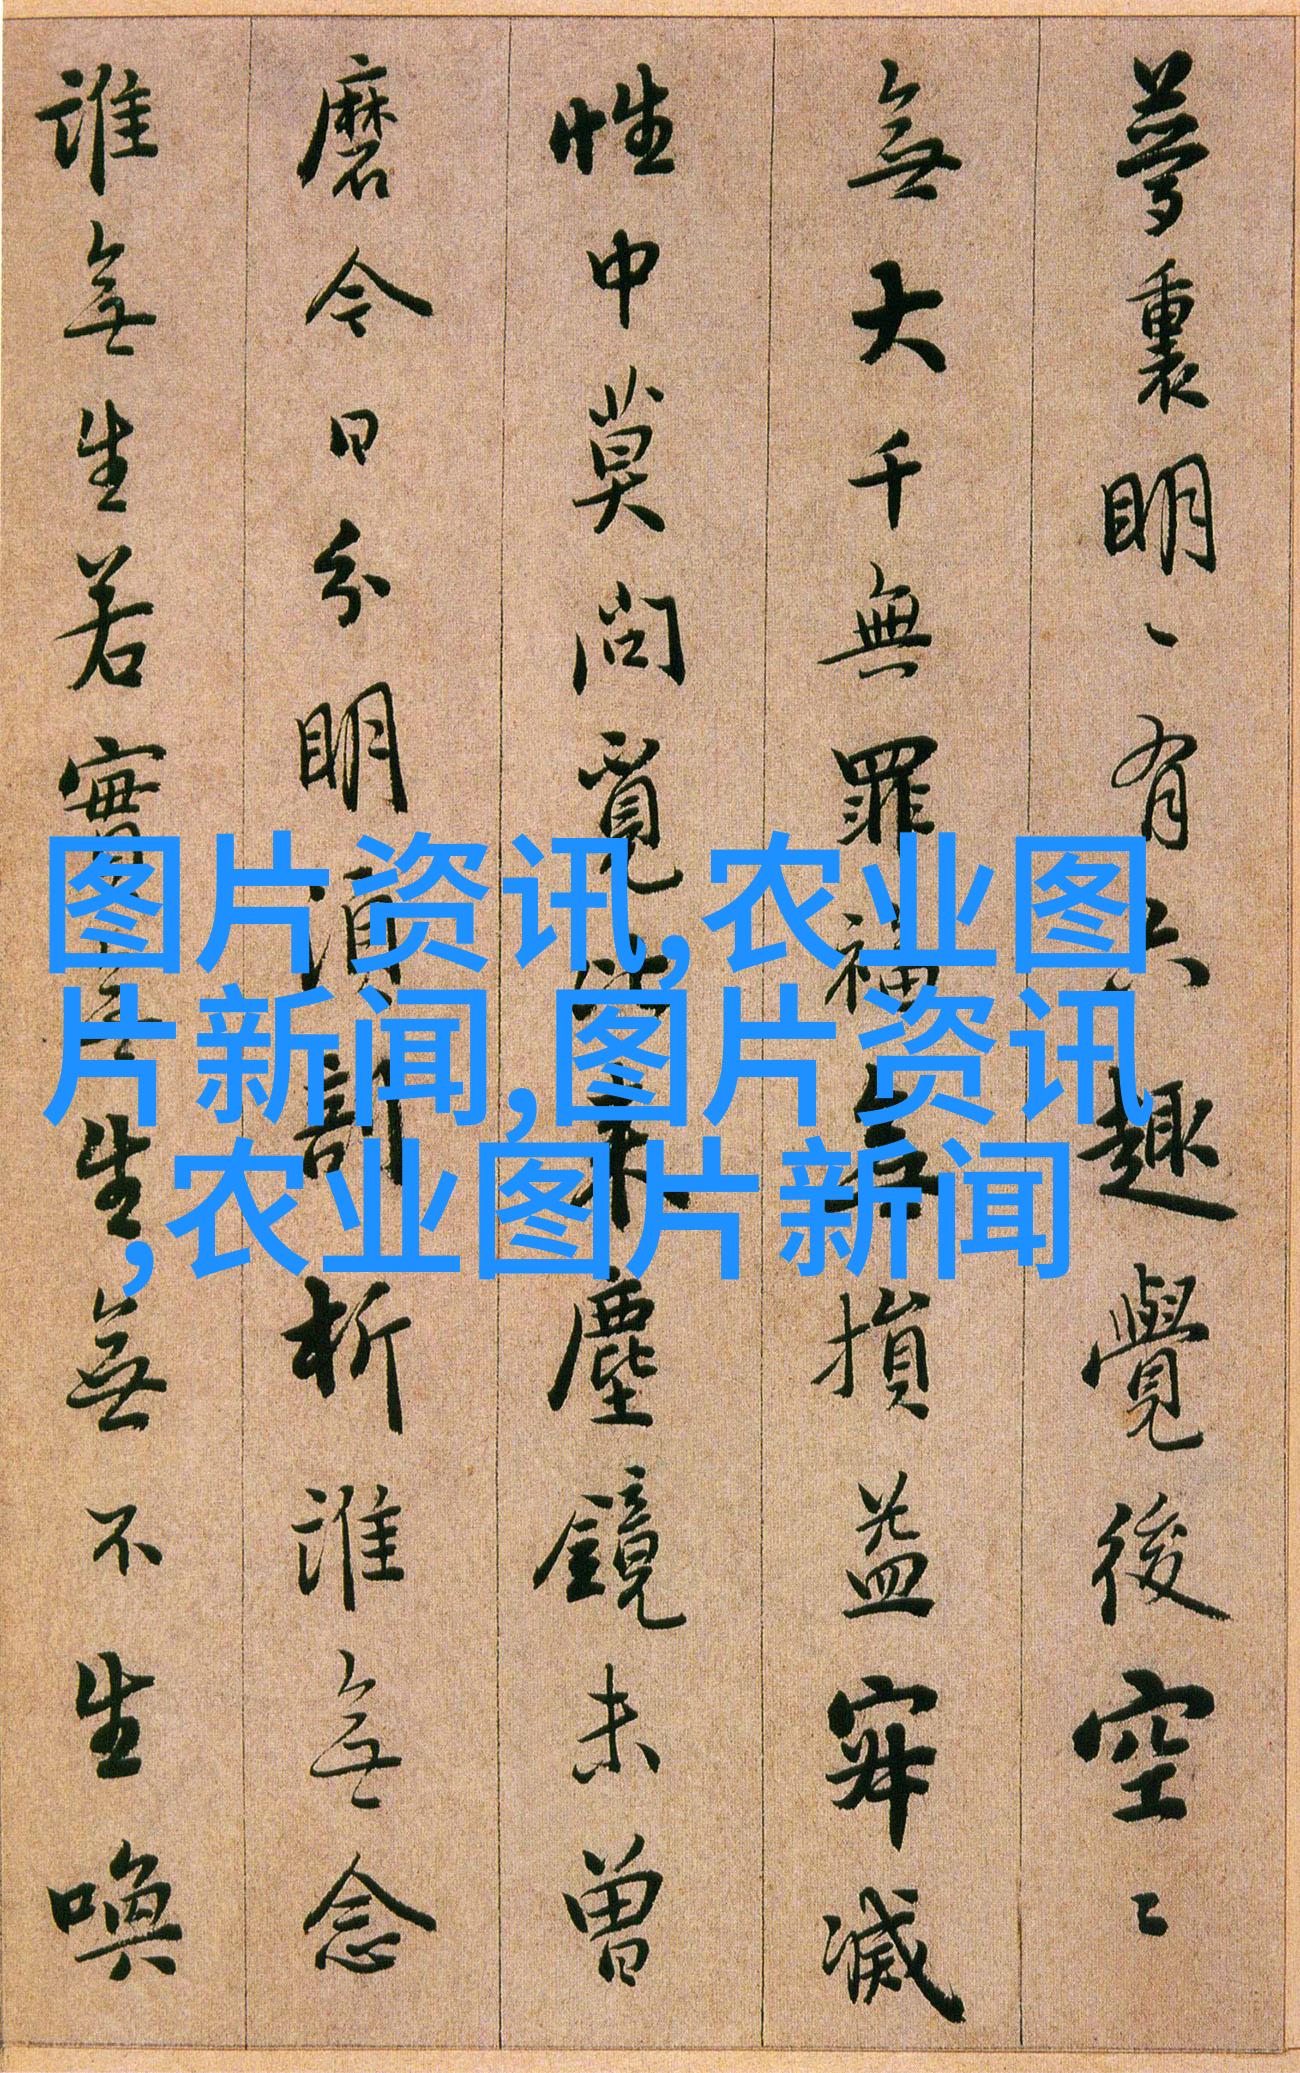 夢裏明々有六趣覺後空々
無大千無罪福無損益寂滅
性中莫問覓比来塵鏡未曾
磨今日分明須剖析誰無念
誰無生若實無生無不生喚
图片资讯,农业图
片新闻,图片资讯
,农业图片新闻